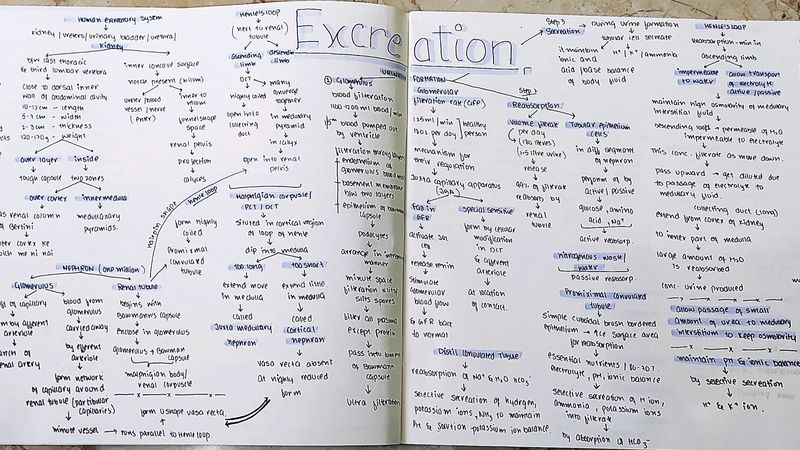 Excreation.
Human excretory system
kidney / ureters / urinary bladder / urethra /
kidney
b/w last thoracic
& third lumbar vertebra
close to dorsal inner
wall of abdominal cavity
10-12cm - length
5-7cm - width
2-3cm - thickness
120-170g - weight
outer layer inside
tough capsule two zones
outer cortex inner medulla
renal column
of Bertini
medullary
pyramids.
inner concave surface
notch present (hilum)
ureter / blood
vessel / nerve
(enter)
inner to
hilum
funnel shape
space
renal pelvis
projection
calyces
NEPHRON (one million)
Glomerulus Renal tubule
of capillary
by afferent
arteriole
renal artery
blood from
glomerulus
carried away
by efferent
arteriole
form network
of capillary around
renal tubule (peritubular
capillaries)
minute vessel → runs parallel to Henle loop
begins with
Bowman's capsule
enclose in glomerulus
glomerulus + Bowman
capsule
malpighian body /
renal corpuscle
form U shape vasa recta
form highly
coiled
proximal
convoluted
tubule
Hairpin shape
Henle loop
HENLE'S LOOP
(next to renal)
tubule
ascending
limb
descend
limb
DCT
highly coiled
open into
collecting
duct
many
converge
together
in medullary
pyramid
duct
in calyx
open into renal
pelvis
Malpighian corpuscle /
PCT / DCT
situated in cortical region
of loop of Henle
dip into medulla
too long too short
extend more
in medulla
called
Juxta medullary
nephron
extend little
in medulla
called
cortical
nephron
vasa recta absent
or highly reduced
form
URINE FORMATION
① Glomerulus
blood filteration
1100-1200 ml blood / min
1/5th blood pumped out
by ventricle
filteration through layers
endothelium of
glomerulus blood
basement membrane
b/w two layers
epithelium of Bowman
capsule
podocytes
arrange in
manner
minute space
filteration slits /
slits spores
filter all plasma
except protein
pass into lumen
of Bowman
capsule
ultra filteration
Glomerular
filteration rate (GFR)
125ml / min healthy
180L per day / person
mechanism for
their regulation
Juxta capillary apparatus
(JGA)
Fall in
GFR
special sensitive
activate JG
cells
release renin
stimulate
glomerular
blood flow
& GFR back
to normal
form by cellular
modification
in DCT
& afferent
arteriole
at location
of contact.
Distil convoluted Tubule
reabsorption of Na+ & H2O HCO3-
selective secreation of hydrogen,
potassium ions, NH3 to maintain
pH & sodium potassium ion balance
Step 3
Secreation
during urine formation
tubular cell secreate
H+ / K+ / ammonia
it maintain
ionic and
acid / base balance
of body fluid
Step 2
Reabsorption
volume filtrate
per day
(180 litres)
(1.5 litre urine)
release
99% of filtrate
reabsorb by
renal
tubule
Tubular epithelium
cells
in diff segment
of nephron
perform by
active / passive
glucose, amino
acid, Na+
active reabsorp.
nitrogenous waste /
water
passive reabsorp.
Proximal convoluted
tubule
simple cuboidal brush bordered
epithelium → ↑ce surface area
for reabsorption
essential nutrients / 70-80%
electrolyte, pH, ionic balance
selective secreation of H ion,
ammonia, potassium ions
into filtrate
by absorption of HCO3-
HENLE'S LOOP
Reabsorption - min in
ascending limb
impermeable
to water
allow transport
of electrolyte
active / passive
maintain high osmolarity of medullary
interstitial fluid
descending loop → permeable of H2O
impermeable to electrolyte
this conc. filtrate as move down.
pass upward → get diluted due
to passage of electrolyte to
medullary fluid.
collecting duct (long)
extend from cortex of kidney
to inner part of medulla
large amount of H2O
is reabsorbed
conc. urine produced
allow passage of small
amount of urea to medullary
intersitium to keep osmolarity
maintain pH & ionic balance
by selective secreation
H+ & K+ ion.